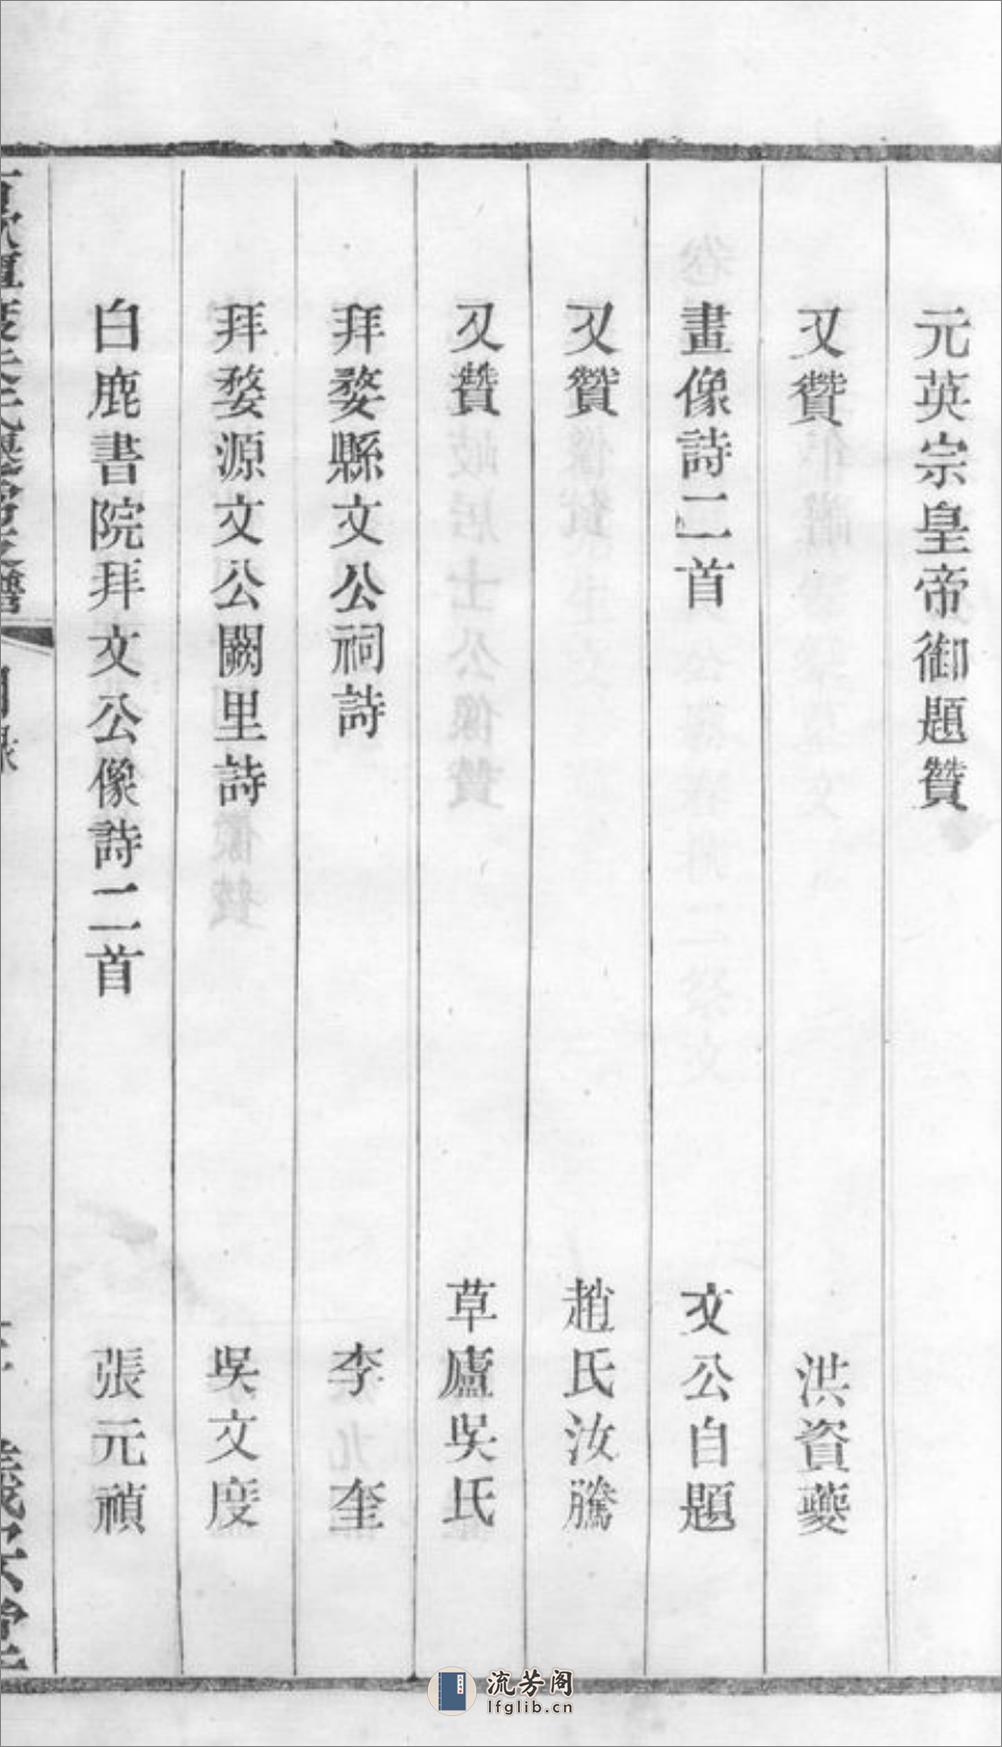 元英宗皇帝御題贊
又贊　洪資夔
畫像詩二首　文公自題
又贊　趙氏汝騰
又贊　草廬吳氏
拜婺縣文公祠詩　李奎
拜婺源文公闕里詩　吳文度
白鹿書院拜文公像詩二首　張元禎
目錄
流芳阁
lfglib.cn